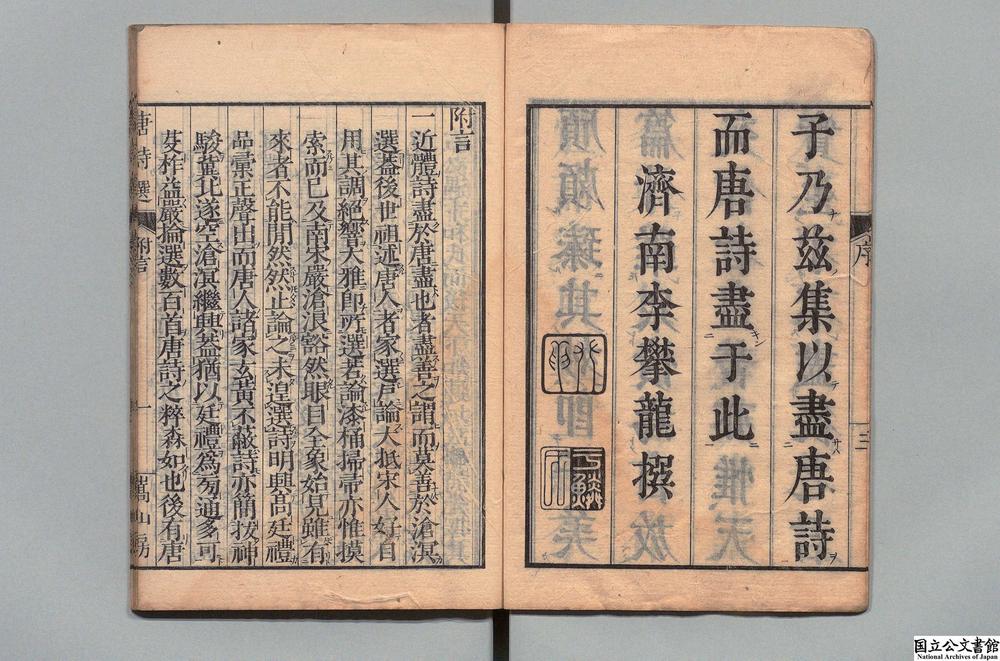 序
三
子乃茲集以盡唐詩
而唐詩盡于此
濟南李攀龍撰
附言
一近體詩盡於唐盡也者盡善之謂而莫善於滄溟
選蓋後世祖述唐人者家選戶論大抵宋人好自
用其調絕響大雅即所選若論漆桶掃帚亦惟摸
索而已及南宋嚴滄浪豁然眼目全象始見雖有
來者不能間然然止論之未遑選詩明興高廷禮
品彙正聲出而唐人諸家玄黃不蔽詩亦簡拔神
駿冀北遂空滄溟繼興蓋猶以廷禮為芻通多可
芟柞益嚴掄選數百首唐詩之粹森如也後有唐
唐詩選
附言
一
嵩山房
国立公文書館
National Archives of Japan